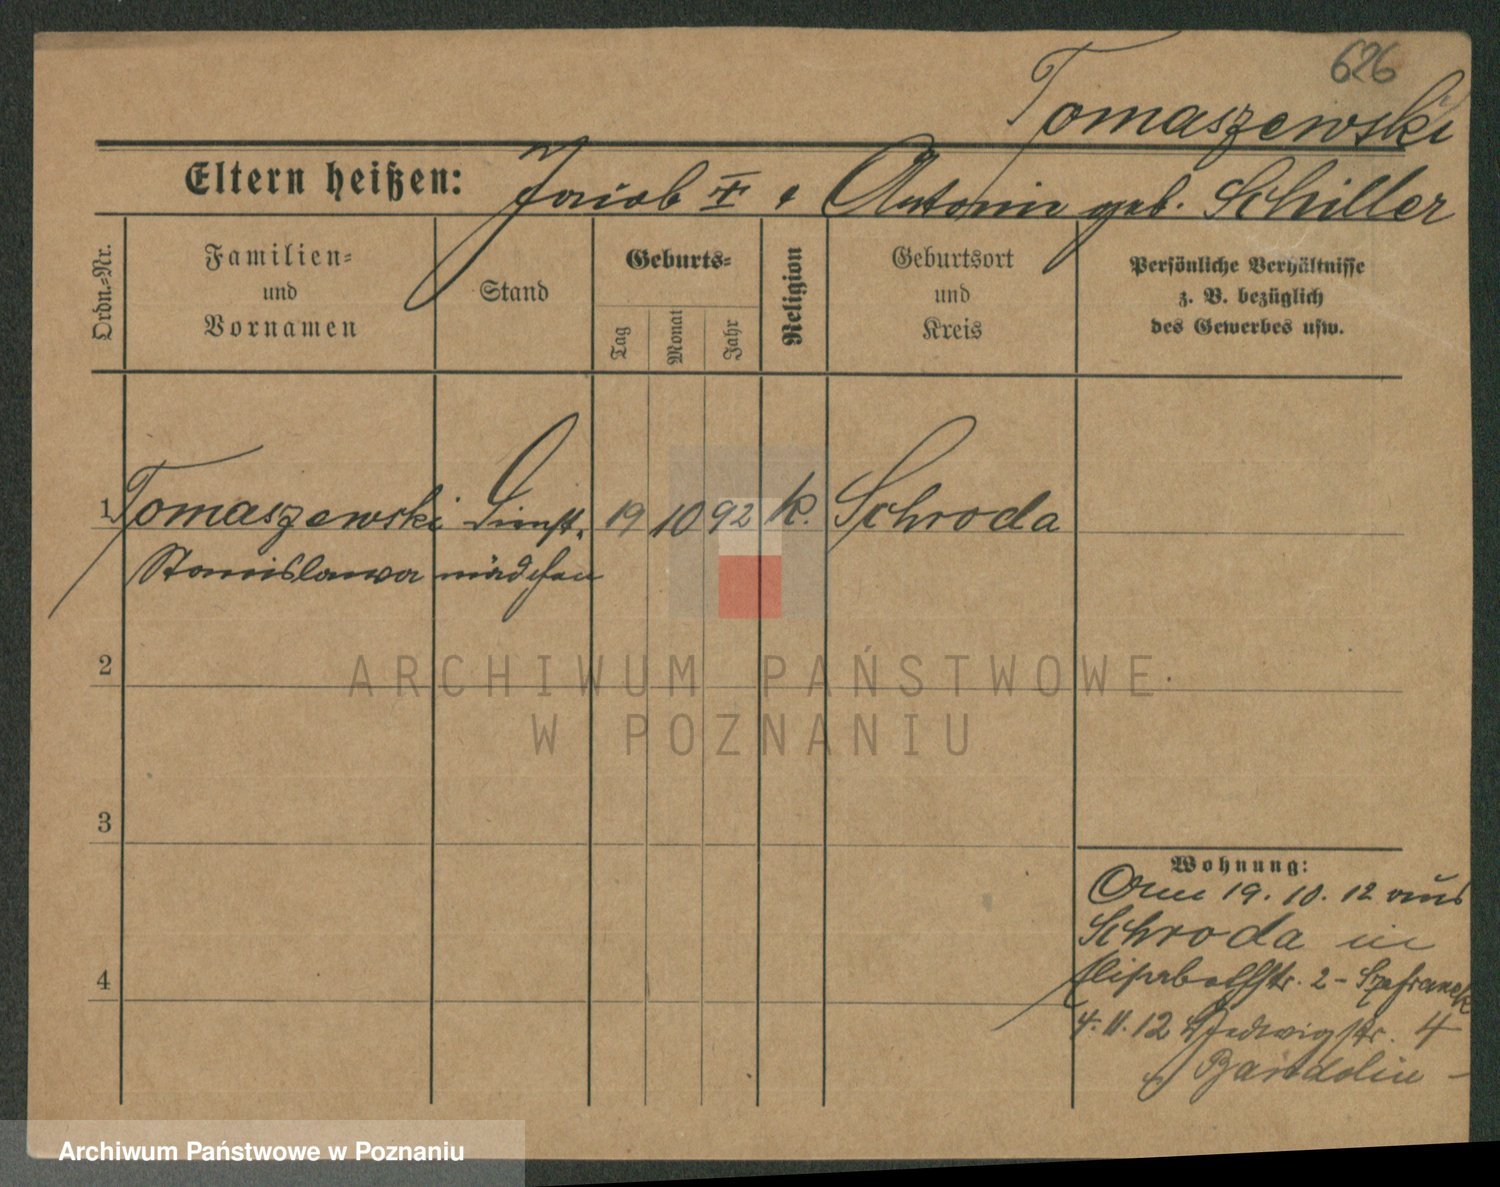 626
Tomaszewski
Eltern heißen: Jakob † & Antonie geb. Schiller
Ordn.-Nr.
Familien-
und
Vornamen
Stand
Geburts-
Tag
Monat
Jahr
Religion
Geburtsort
und
Kreis
Persönliche Verhältnisse
z. B. bezüglich
des Gewerbes usw.
1 Tomaszewski Dienst- 19 10 92 k. Schroda
Stanislawa mädchen
2
3
4
Wohnung:
Am 19. 10. 12 aus
Schroda in
Elisabethstr. 2 - Szafranek
4. 11. 12 Hedwigstr. 4
Bandolin -
ARCHIWUM PAŃSTWOWE
W POZNANIU
Archiwum Państwowe w Poznaniu